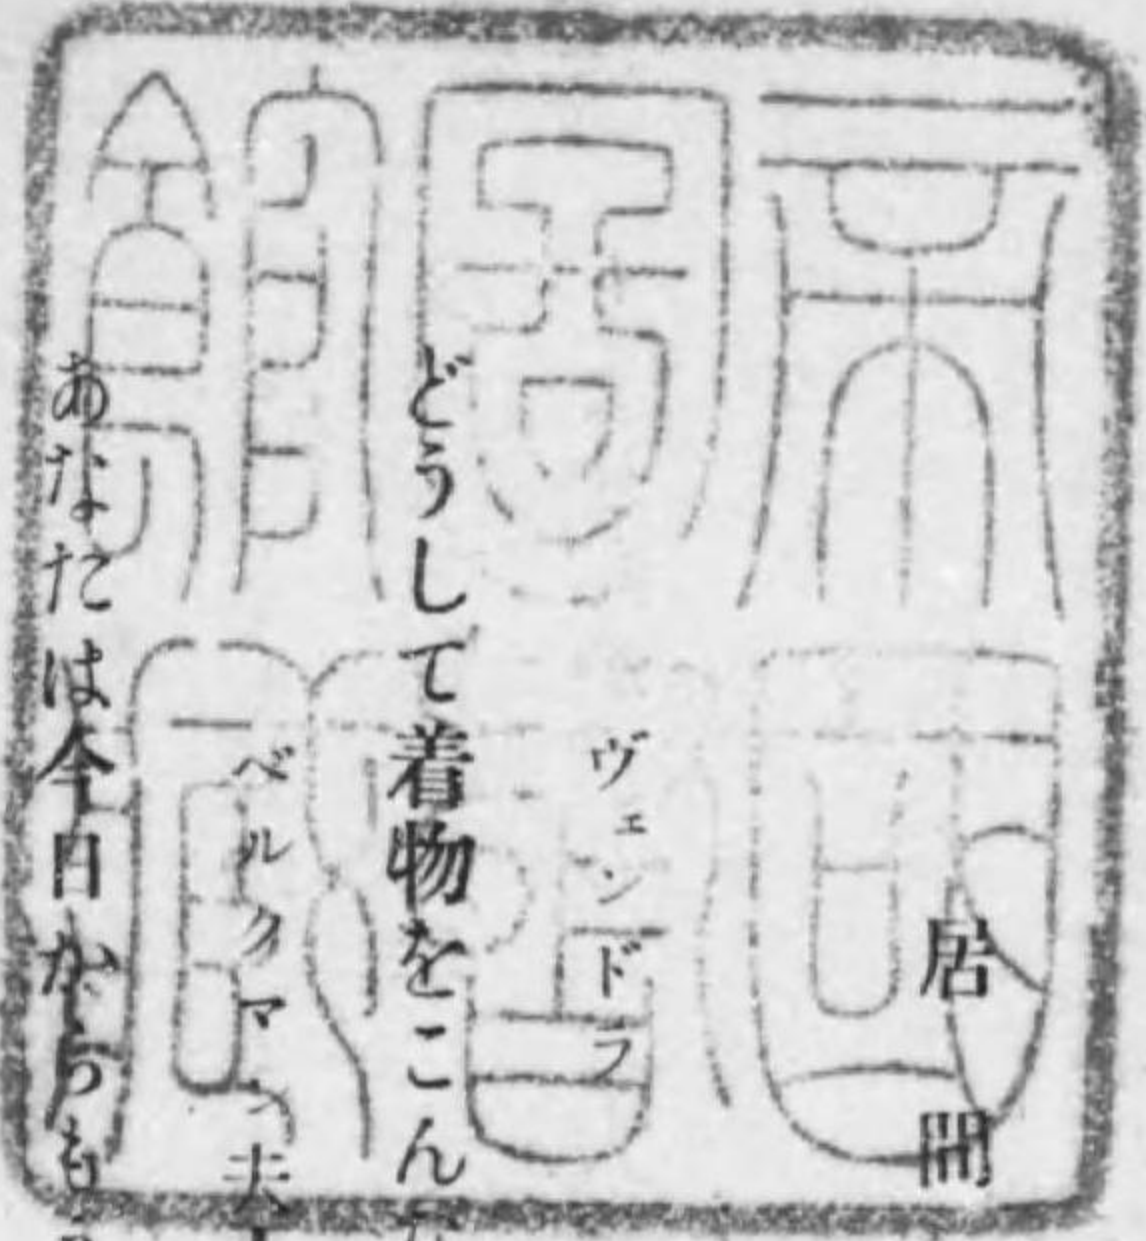 帝國
圖書
館藏
居間
ヴェンドラ
どうして着物をこん
ベルクマン夫
あなたは今日からも